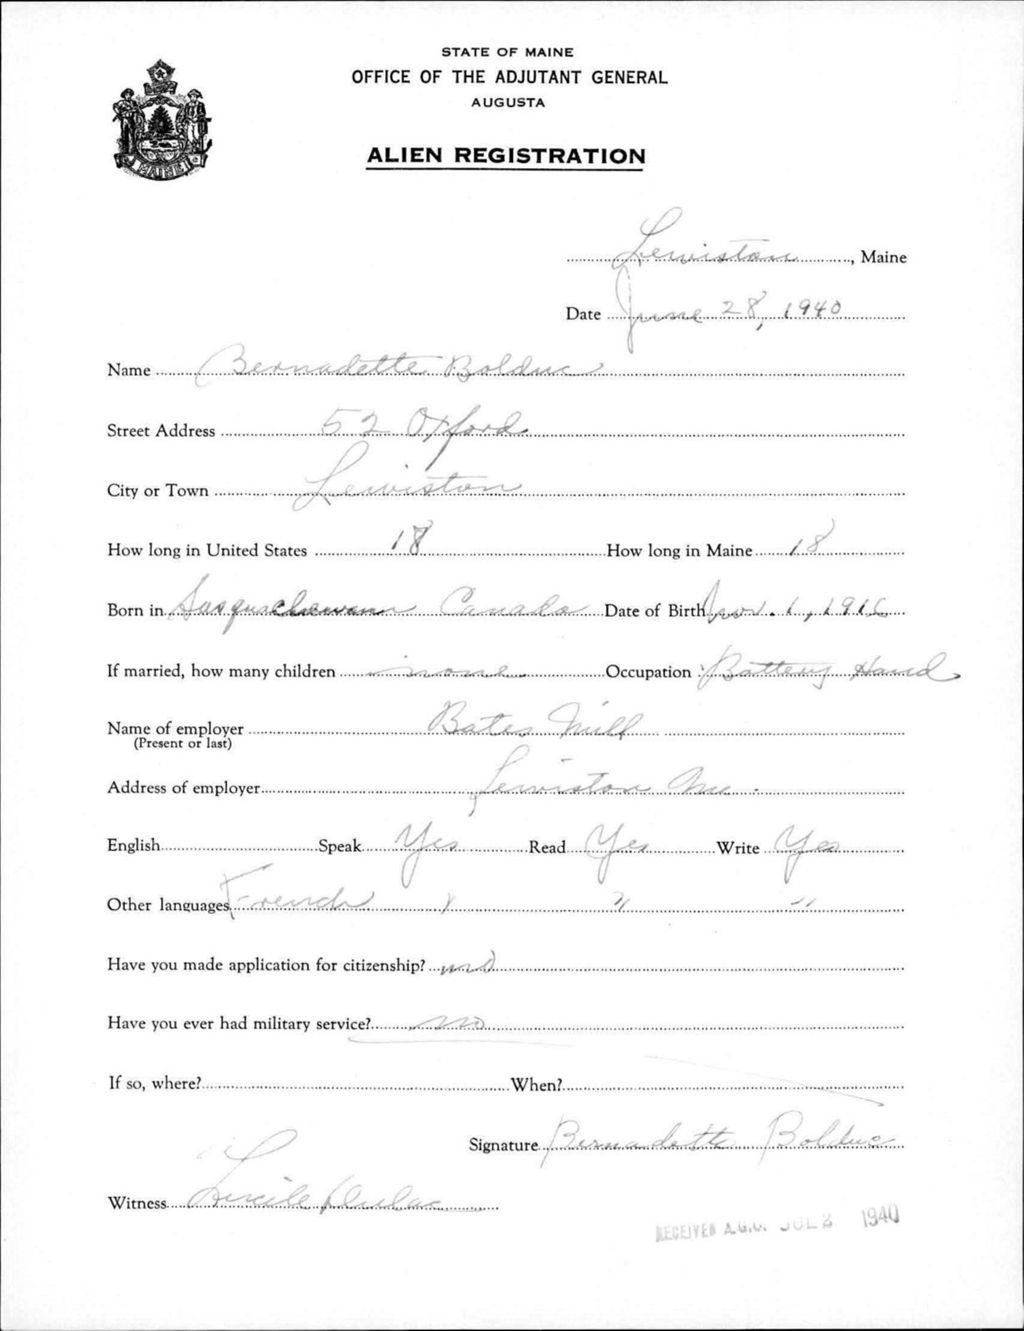 STATE OF MAINE
OFFICE OF THE ADJUTANT GENERAL
AUGUSTA
ALIEN REGISTRATION
MAINE
Lewiston, Maine
Date June 28, 1940
Name Bernadette Bolduc
Street Address 52 Oxford
City or Town Lewiston
How long in United States 18 How long in Maine 18
Born in Sasquachewann Canada Date of Birth Nov. 1, 1916
If married, how many children none Occupation Battery Hand
Name of employer Bates Mill
(Present or last)
Address of employer Lewiston Me.
English Speak Yes Read Yes Write Yes
Other languages French " " "
Have you made application for citizenship? no
Have you ever had military service? no
If so, where? When?
Signature Bernadette Bolduc
Witness Lucile Dulac
RECEIVED A.G.O. JUL 2 1940